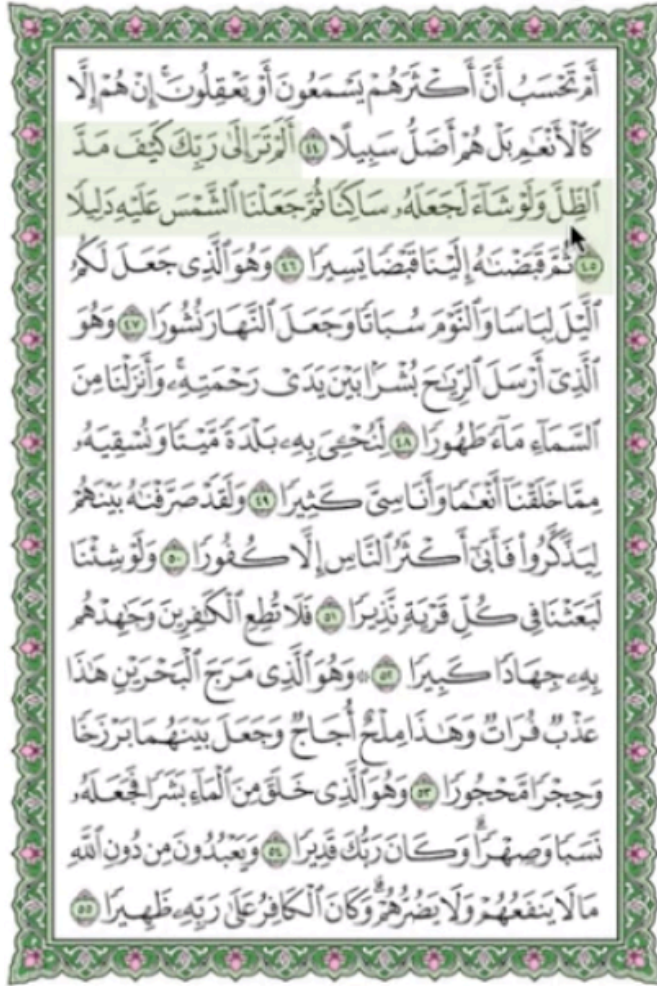 أَمْ تَحْسَبُ أَنَّ أَكْثَرَهُمْ يَسْمَعُونَ أَوْ يَعْقِلُونَ ۚ إِنْ هُمْ إِلَّا
كَالْأَنْعَٰمِ بَلْ هُمْ أَضَلُّ سَبِيلًا ٤٤ أَلَمْ تَرَ إِلَىٰ رَبِّكَ كَيْفَ مَدَّ
ٱلظِّلَّ وَلَوْ شَآءَ لَجَعَلَهُۥ سَاكِنًا ثُمَّ جَعَلْنَا ٱلشَّمْسَ عَلَيْهِ دَلِيلًا
٤٥ ثُمَّ قَبَضْنَٰهُ إِلَيْنَا قَبْضًا يَسِيرًا ٤٦ وَهُوَ ٱلَّذِى جَعَلَ لَكُمُ
ٱلَّيْلَ لِبَاسًا وَٱلنَّوْمَ سُبَاتًا وَجَعَلَ ٱلنَّهَارَ نُشُورًا ٤٧ وَهُوَ
ٱلَّذِىٓ أَرْسَلَ ٱلرِّيَٰحَ بُشْرًۢا بَيْنَ يَدَىْ رَحْمَتِهِۦ ۚ وَأَنزَلْنَا مِنَ
ٱلسَّمَآءِ مَآءً طَهُورًا ٤٨ لِّنُحْـِۧىَ بِهِۦ بَلْدَةً مَّيْتًا وَنُسْقِيَهُۥ
مِمَّا خَلَقْنَآ أَنْعَٰمًا وَأَنَاسِىَّ كَثِيرًا ٤٩ وَلَقَدْ صَرَّفْنَٰهُ بَيْنَهُمْ
لِيَذَّكَّرُوا۟ فَأَبَىٰٓ أَكْثَرُ ٱلنَّاسِ إِلَّا كُفُورًا ٥٠ وَلَوْ شِئْنَا
لَبَعَثْنَا فِى كُلِّ قَرْيَةٍ نَّذِيرًا ٥١ فَلَا تُطِعِ ٱلْكَٰفِرِينَ وَجَٰهِدْهُم
بِهِۦ جِهَادًا كَبِيرًا ٥٢ ۞ وَهُوَ ٱلَّذِى مَرَجَ ٱلْبَحْرَيْنِ هَٰذَا
عَذْبٌ فُرَاتٌ وَهَٰذَا مِلْحٌ أُجَاجٌ وَجَعَلَ بَيْنَهُمَا بَرْزَخًا
وَحِجْرًا مَّحْجُورًا ٥٣ وَهُوَ ٱلَّذِى خَلَقَ مِنَ ٱلْمَآءِ بَشَرًا فَجَعَلَهُۥ
نَسَبًا وَصِهْرًا ۗ وَكَانَ رَبُّكَ قَدِيرًا ٥٤ وَيَعْبُدُونَ مِن دُونِ ٱللَّهِ
مَا لَا يَنفَعُهُمْ وَلَا يَضُرُّهُمْ ۗ وَكَانَ ٱلْكَافِرُ عَلَىٰ رَبِّهِۦ ظَهِيرًا ٥٥